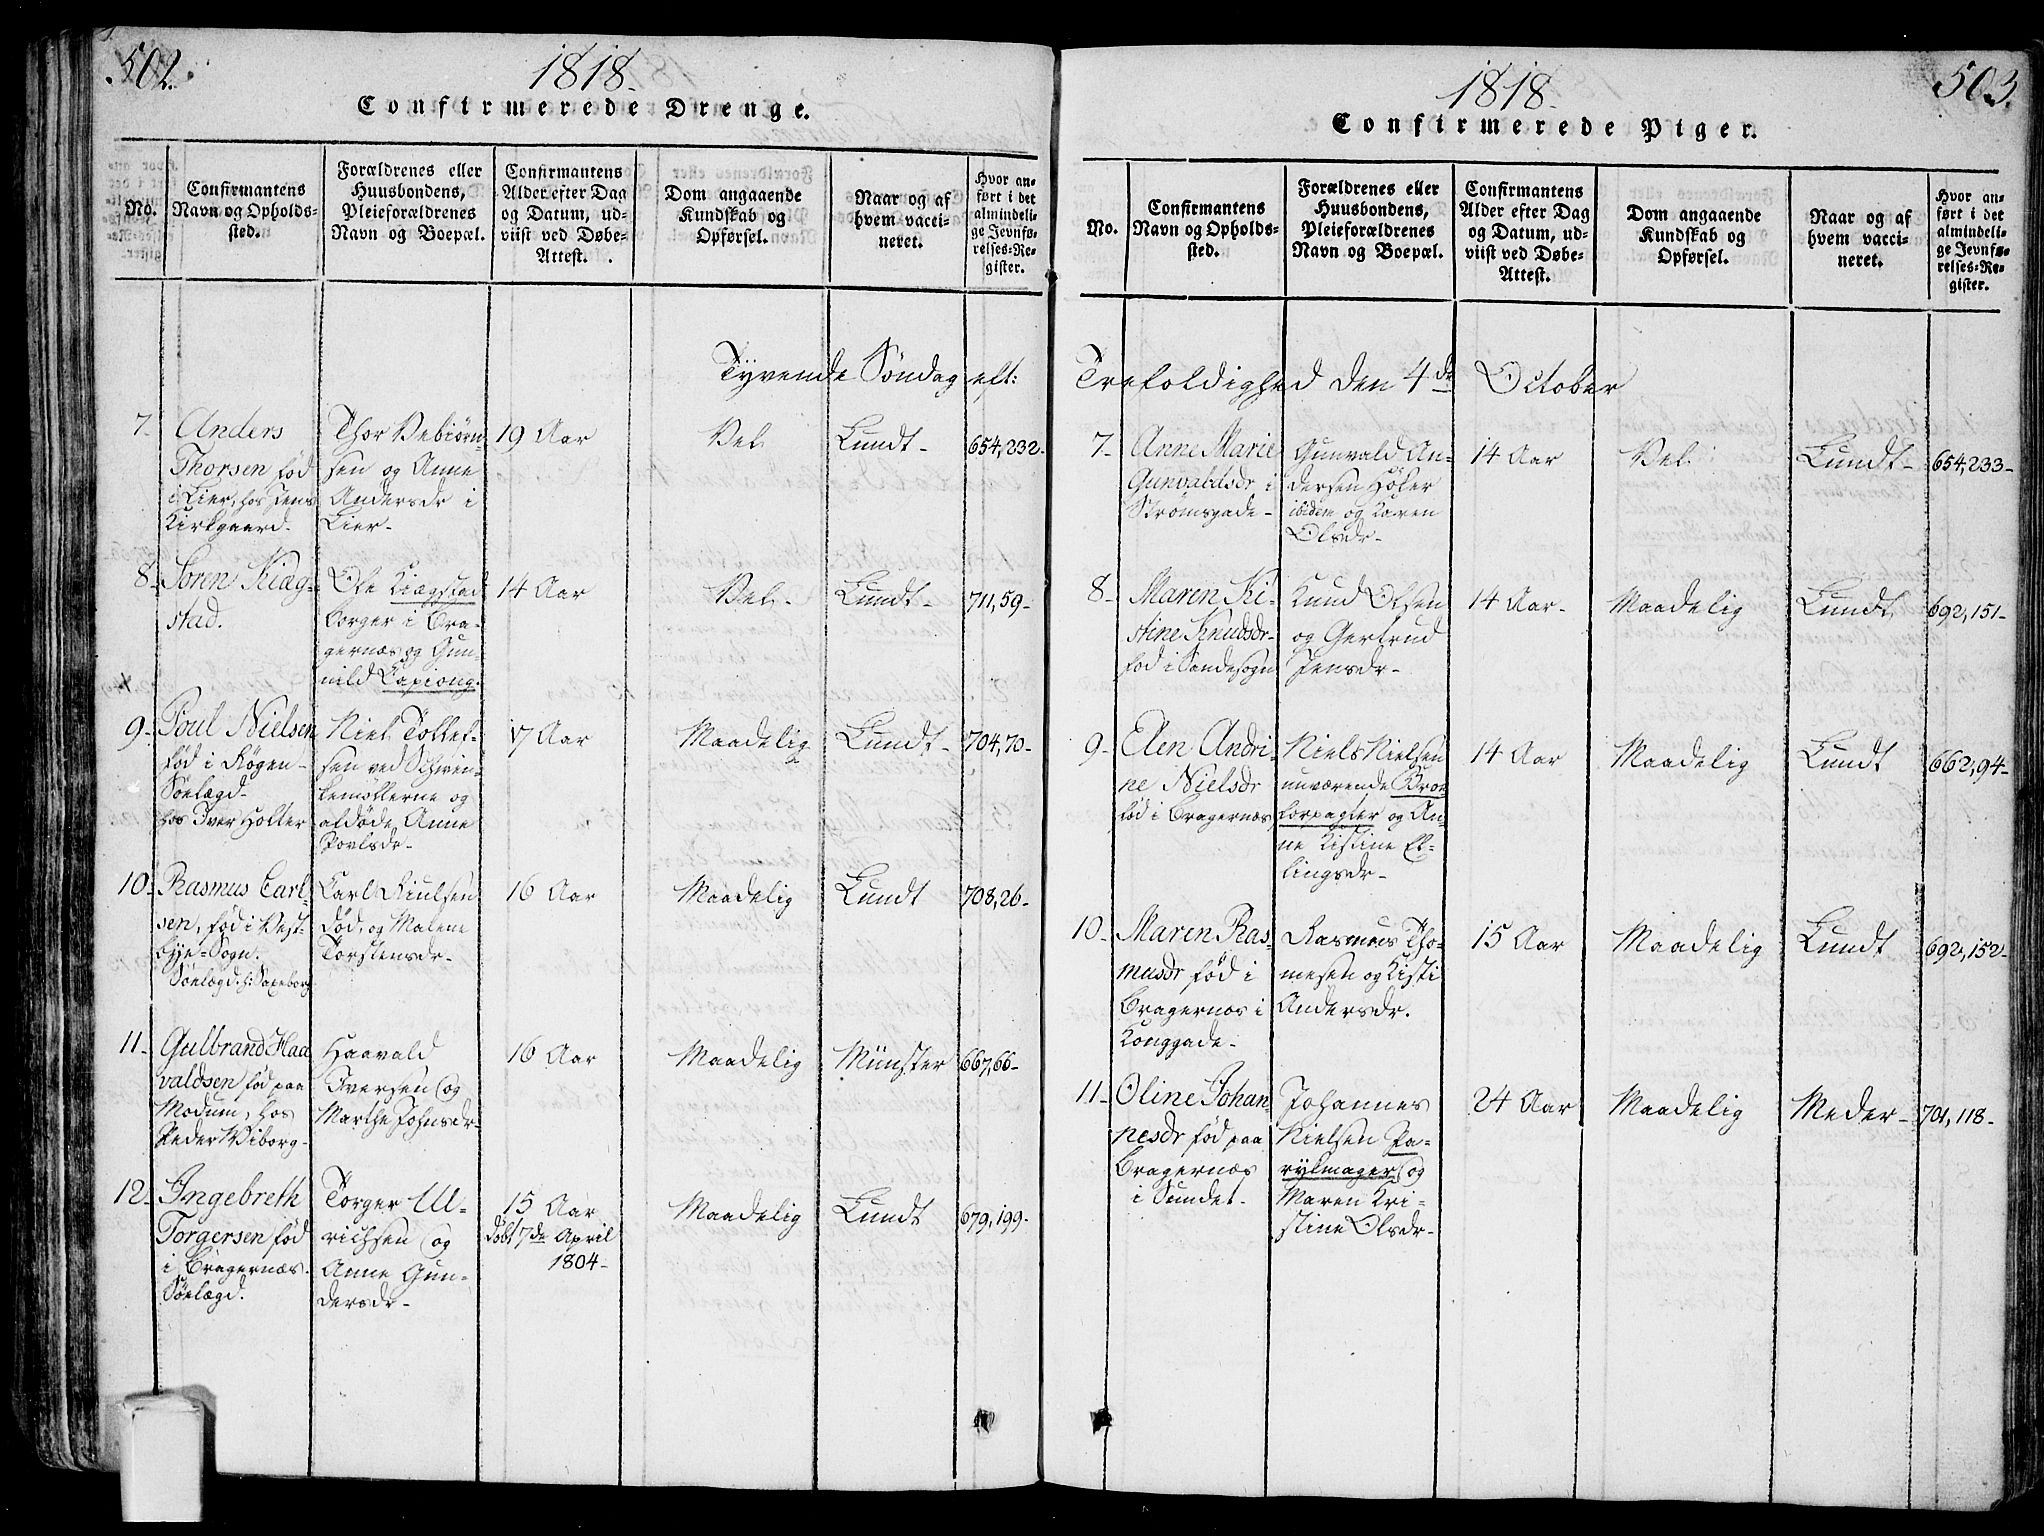 502.
1818.
Confirmerede Drenge.
No.
Confirmantens
Navn og Opholds-
sted.
Forældrenes eller
Huusbondens,
Pleieforældrenes
Navn og Boepæl.
Confirmantens
Alder efter Dag
og Datum, ud-
viist ved Døbe-
Attest.
Dom angaaende
Kundskab og
Opførsel.
Naar og af
hvem vacci-
neret.
Hvor an-
ført i det
almindeli-
ge Jevnfø-
relses-Re-
gister.
Tyvende Söndag eft:
7-
Anders
Thorsen fød
i Lier, hos Jens
Kirkgaard-
Thor Vebiørn-
sen og Anne
Andersdr i
Lier-
19 Aar
Vel
Lundt-
654,232-
8-
Sören Kiæg-
stad.
Ole Kiægstad
borger i Bra-
gernæs og Gun-
nild Lapiong.
14 Aar
Vel-
Lundt-
711,59-
9-
Poul Nielsen
fød i Røgen-
Sölægd-
hos Iver Holter
Niel Tollef-
sen ved Schwen-
kemøllerne og
afdøde Anne
Povlsdr-
17 Aar
Maadelig
Lundt-
704,70-
10-
Rasmus Carl-
sen, fød i Vest-
bye-Sogn.
Sölægd. h: Saxeborg
Carl Kiulsen
død, og Malene
Torstensdr-
16 Aar
Maadelig
Lundt
708,26-
11-
Gulbrand Haa
valdsen fød paa
Modum, hos
Peder Wiborg-
Haavald
Iversen og
Marthe Johnsdr-
16 Aar
Maadelig
Münster
667,66-
12-
Ingebreth
Torgersen fød
i Bragernæs.
Sölægd.
Torger Ul-
richsen og
Anne Gun-
dersdr-
15 Aar
døbt 7de April
1804-
Maadelig
Lundt
679,199-
503.
1818.
Confirmerede Piger.
No.
Confirmantens
Navn og Opholds-
sted.
Forældrenes eller
Huusbondens,
Pleieforældrenes
Navn og Boepæl.
Confirmantens
Alder efter Dag
og Datum, ud-
viist ved Døbe-
Attest.
Dom angaaende
Kundskab og
Opførsel.
Naar og af
hvem vacci-
neret.
Hvor an-
ført i det
almindeli-
ge Jevnfø-
relses-Re-
gister.
Trefoldighed den 4de October
7-
Anne Marie
Gunvaldsdr i
Strømsgade-
Gunvald An-
dersen Höker
ibidem og Karen
Olsdr-
14 Aar
Vel
Lundt-
654,233-
8-
Maren Ki-
stine Knudsdr-
fød i Sandesogn
Knud Olsen
og Gertrud
Jensdr-
14 Aar-
Maadelig
Lundt
692,151-
9-
Elen Andri
ne Nielsdr
fød i Bragernæs
Niels Nielsen
nuværende Broe
forpagter og An-
ne Kistine El-
lingsdr-
14 Aar
Maadelig
Lundt
662,94-
10-
Maren Ras-
musdr fød i
Bragernæs i
Konggade-
Rasmus Tho-
mesen og Kisti
Andersdr.
15 Aar
Maadelig
Lundt
692,152-
11-
Oline Johan-
nesdr fød paa
Bragernæs
i Sundet-
Johannes
Nielsen Pa-
rykmager og
Maren Kri-
stine Olsdr-
24 Aar
Maadelig
Meder-
701,118-